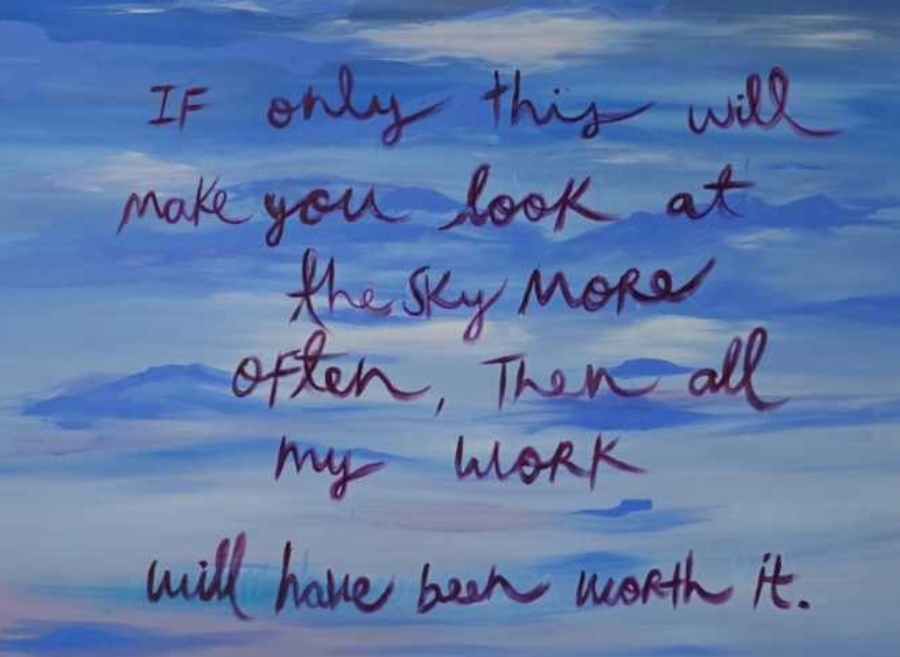 IF only this will
make you look at
the sky MORE
often, Then all
my WORK
will have been worth it.